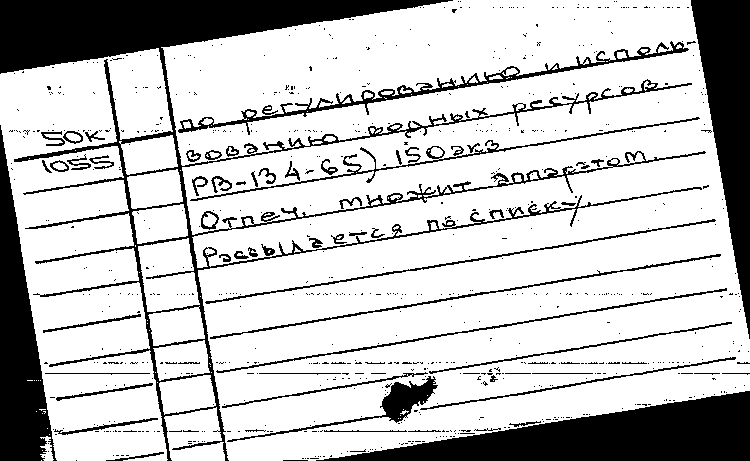 по регулированию и исполь-
50К
зованию водных ресурсов.
1055
РВ-134-65). 150экз.
Отпеч. множит аппаратом.
Рассылается по списку.